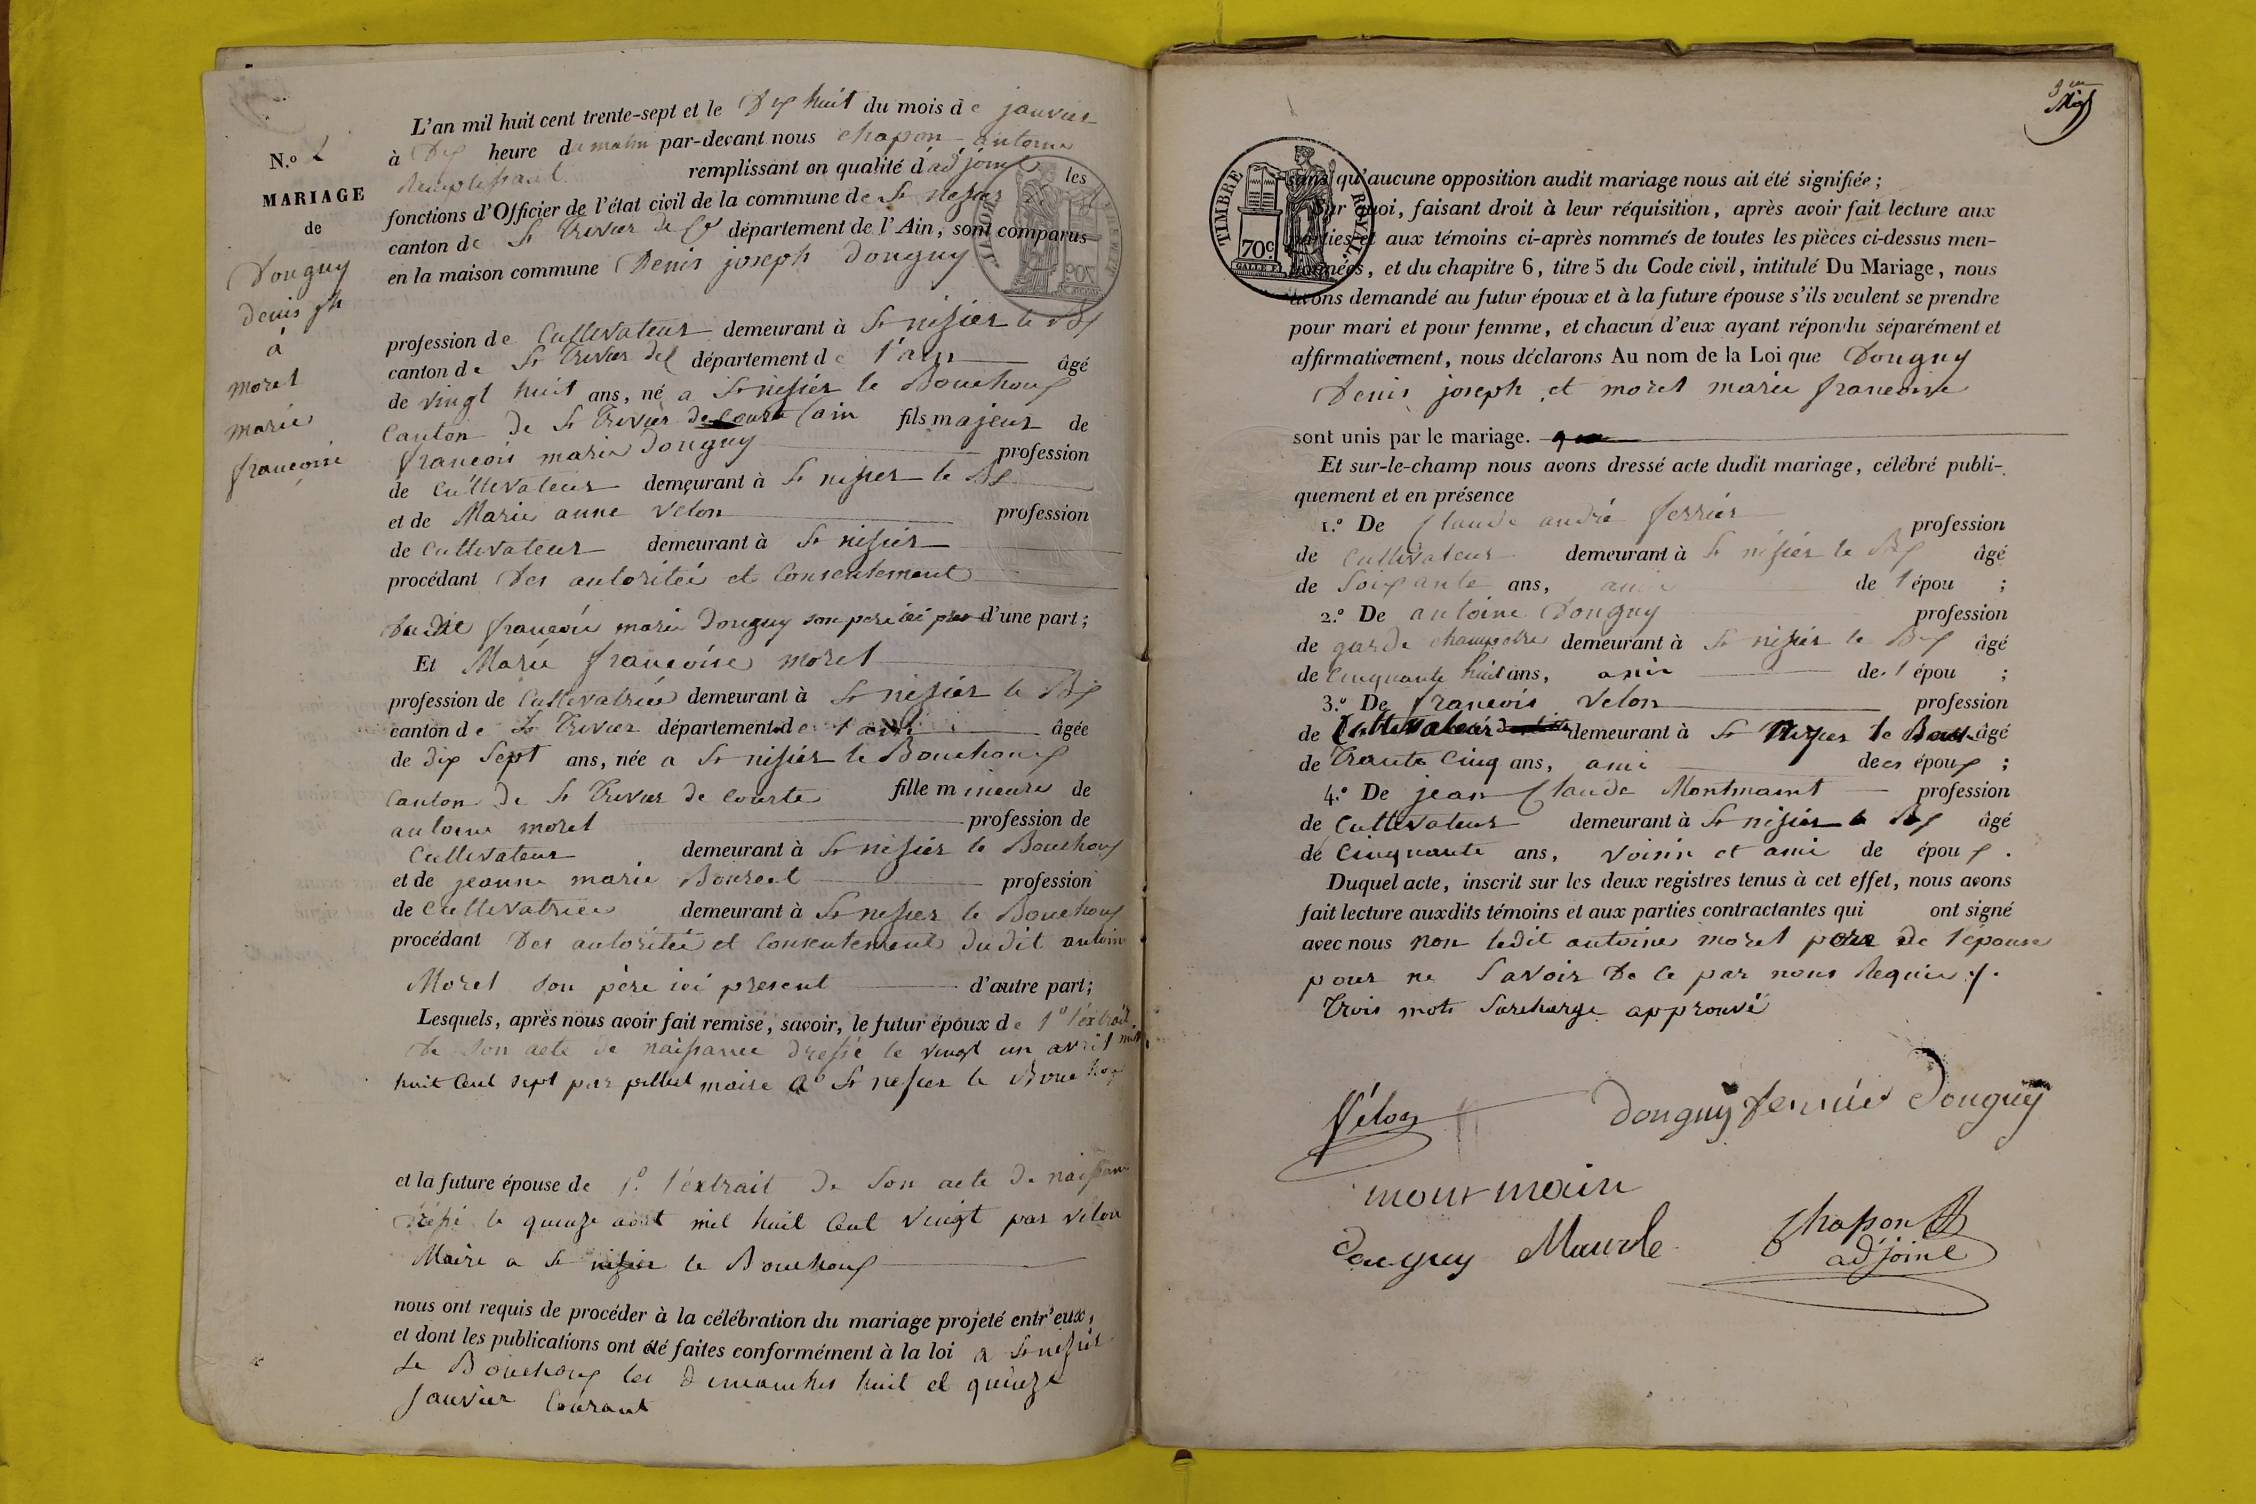 N.o 2
MARIAGE
de
Donguy
denis jph
à
morel
marie
francoise
L'an mil huit cent trente-sept et le Dix huit du mois de janvier
à Dix heure du matin par-devant nous chapon antoine
remplissant remplissant en qualité d'adjoint les
fonctions d'Officier de l'état civil de la commune de St nisier
canton de St Trivier de Ct département de l'Ain, sont comparus
en la maison commune Denis joseph Donguy
profession de Cultivateur demeurant à St nisier le Bx
canton de St Trivier de C département de l'ain âgé
de vingt huit ans, né a St nisier le Bouchoux
Canton de St Trivier de Courte (ain fils majeur de
francois marie Donguy profession
de Cultivateur demeurant à St nisier le Bx
et de Marie anne Velon profession
de Cultivateur demeurant à St nisier
procédant Des autoritéé et Consentement
du dit francois marie Donguy son pere ici pres d'une part;
Et Marie francoise morel
profession de Cultivatrice demeurant à St nisier le Bx
canton de St Trivier département de l'ain âgée
de dix Sept ans, née a St nisier le Bouchoux
Canton de St Trivier de Courte fille mineure de
antoine morel profession de
Cultivateur demeurant à St nisier le Bouchoux
et de jeanne marie profession
de Cultivatrice demeurant à St nisier le Bouchoux
procédant Des autoritéé et Consentement dudit antoine
Morel son père ici present d'autre part;
Lesquels, après nous avoir fait remise, savoir, le futur époux de 1o l'extrait
de son acte de naissance dressé le vingt un avril mil
huit Cent sept par maire a St nisier le Bouchoux
et la future épouse de 1o. l'extrait de Son acte de naissance
dressé le quinze aout mil huit Cent Vingt par Velon
Maire a St nisier le Bouchoux
nous ont requis de procéder à la célébration du mariage projeté entr'eux,
et dont les publications ont été faites conformément à la loi a St nisier
le Bouchoux les dimanches huit et quinze
Janvier Courant
3me
TIMBRE ROYAL
70c
sans qu'aucune opposition audit mariage nous ait été signifiée;
Sur quoi, faisant droit à leur réquisition, après avoir fait lecture aux
parties et aux témoins ci-après nommés de toutes les pièces ci-dessus men-
tionnées, et du chapitre 6, titre 5 du Code civil, intitulé Du Mariage, nous
avons demandé au futur époux et à la future épouse s'ils veulent se prendre
pour mari et pour femme, et chacun d'eux ayant répondu séparément et
affirmativement, nous déclarons Au nom de la Loi que Donguy
Denis joseph et morel marie francoise
sont unis par le mariage.
Et sur-le-champ nous avons dressé acte dudit mariage, célébré publi-
quement et en présence
1.o De Claude andré ferrier profession
de Cultivateur demeurant à St nisier le Bx âgé
de Soixante ans, ami de l'épou ;
2.o De antoine Donguy profession
de garde champetre demeurant à St nisier le Bx âgé
de Cinquante huit ans, ami de l'épou ;
3.o De francois Velon profession
de Cultivateur demeurant à St Nizier le Bou âgé
de Trente Cinq ans, ami des époux ;
4.o De jean Claude Montmaint profession
de Cultivateur demeurant à St nisier le Bx âgé
de Cinquante ans, voisin et ami de époux.
Duquel acte, inscrit sur les deux registres tenus à cet effet, nous avons
fait lecture auxdits témoins et aux parties contractantes qui ont signé
avec nous non ledit antoine morel pere de l'épouse
pour ne Savoir De Ce par nous Requis ./.
Trois mots Surcharge approuvé
Vélon donguy ferrier Donguy
mourmain
Donguy Maurele Chapon
adjoint